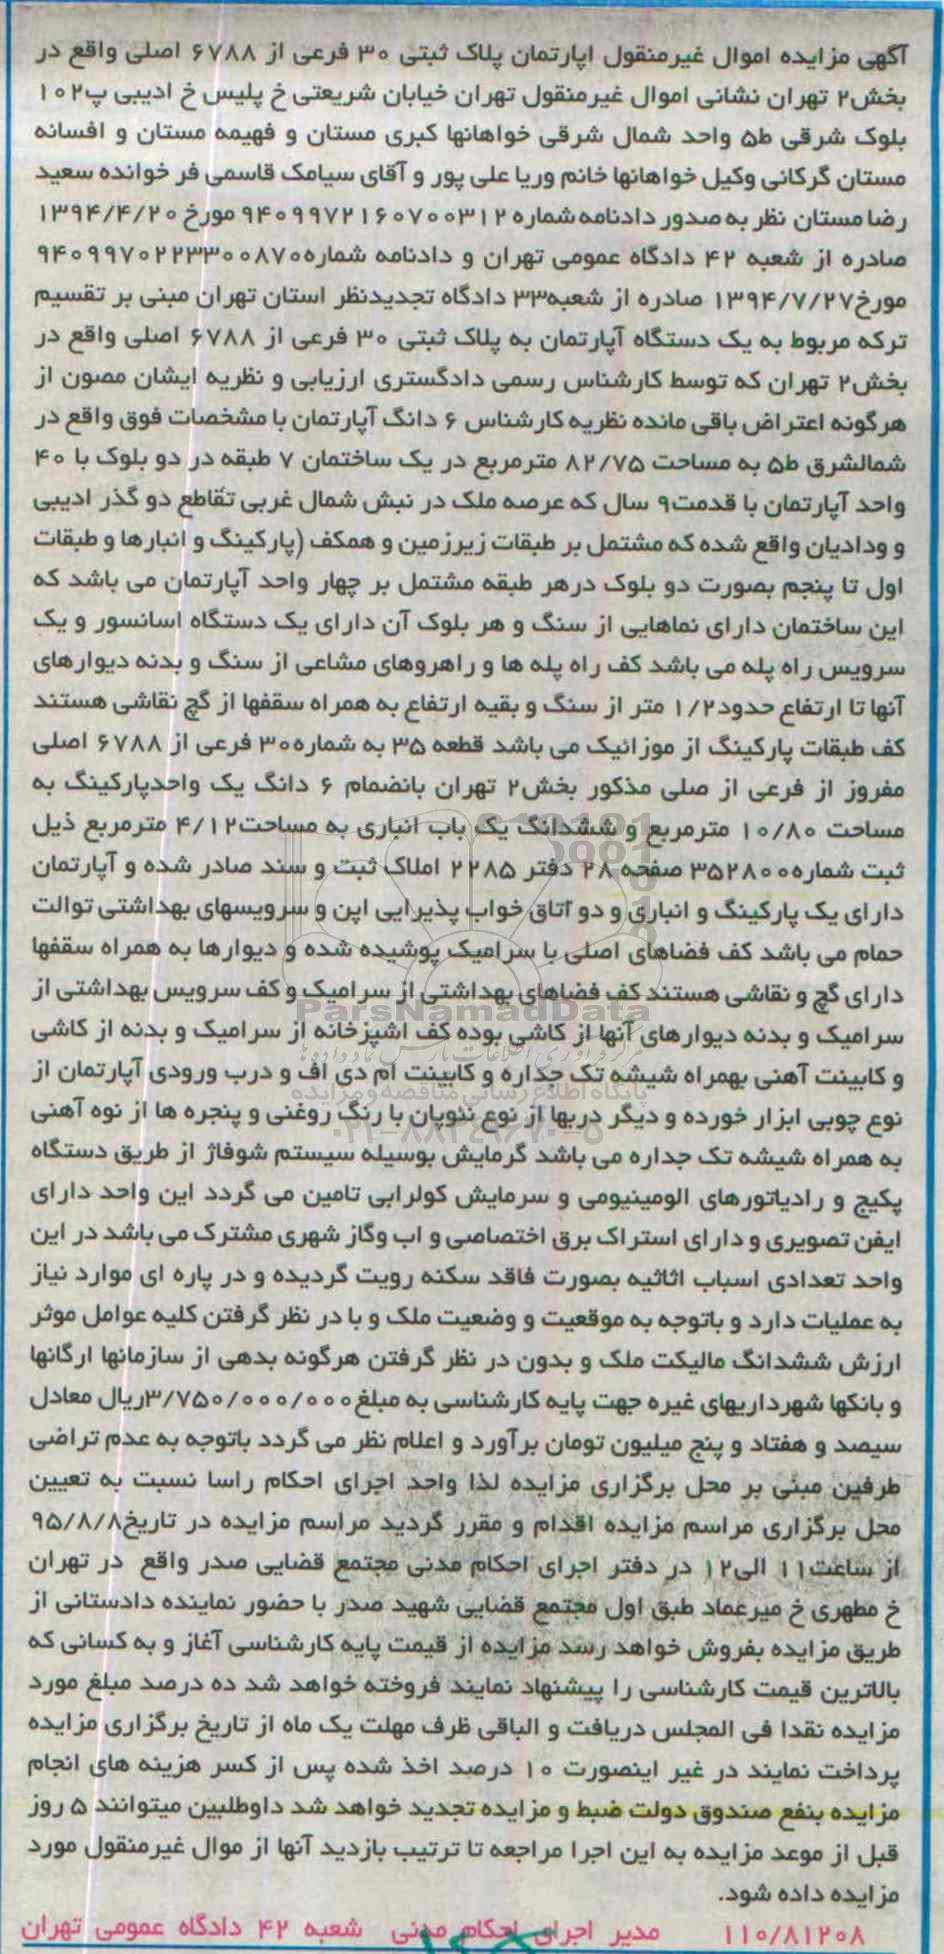 آگهی مزایده اموال غیرمنقول اپارتمان پلاک ثبتی ۳۰ فرعی از ۶۷۸۸ اصلی واقع در
بخش۲ تهران نشانی اموال غیرمنقول تهران خیابان شریعتی خ پلیس خ ادیبی پ۱۰۲
بلوک شرقی ط۵ واحد شمال شرقی خواهانها کبری مستان و فهیمه مستان و افسانه
مستان گرکانی وکیل خواهانها خانم وریا علی پور و آقای سیامک قاسمی فر خوانده سعید
رضا مستان نظر به صدور دادنامه شماره ۹۴۰۹۹۷۲۱۶۰۷۰۰۳۱۲ مورخ ۱۳۹۴/۴/۲۰
صادره از شعبه ۴۲ دادگاه عمومی تهران و دادنامه شماره۹۴۰۹۹۷۰۲۲۳۳۰۰۸۷۰
مورخ۱۳۹۴/۷/۲۷ صادره از شعبه۳۳ دادگاه تجدیدنظر استان تهران مبنی بر تقسیم
ترکه مربوط به یک دستگاه آپارتمان به پلاک ثبتی ۳۰ فرعی از ۶۷۸۸ اصلی واقع در
بخش۲ تهران که توسط کارشناس رسمی دادگستری ارزیابی و نظریه ایشان مصون از
هرگونه اعتراض باقی مانده نظریه کارشناس ۶ دانگ آپارتمان با مشخصات فوق واقع در
شمالشرق ط۵ به مساحت ۸۲/۷۵ مترمربع در یک ساختمان ۷ طبقه در دو بلوک با ۴۰
واحد آپارتمان با قدمت۹ سال که عرصه ملک در نبش شمال غربی تقاطع دو گذر ادیبی
و ودادیان واقع شده که مشتمل بر طبقات زیرزمین و همکف (پارکینگ و انبارها و طبقات
اول تا پنجم بصورت دو بلوک درهر طبقه مشتمل بر چهار واحد آپارتمان می باشد که
این ساختمان دارای نماهایی از سنگ و هر بلوک آن دارای یک دستگاه اسانسور و یک
سرویس راه پله می باشد کف راه پله ها و راهروهای مشاعی از سنگ و بدنه دیوارهای
آنها تا ارتفاع حدود۱/۲ متر از سنگ و بقیه ارتفاع به همراه سقفها از گچ نقاشی هستند
کف طبقات پارکینگ از موزائیک می باشد قطعه ۳۵ به شماره۳۰ فرعی از ۶۷۸۸ اصلی
مفروز از فرعی از صلی مذکور بخش۲ تهران بانضمام ۶ دانگ یک واحدپارکینگ به
مساحت ۱۰/۸۰ مترمربع و ششدانگ یک باب انباری به مساحت۴/۱۲ مترمربع ذیل
ثبت شماره۳۵۲۸۰۰ صفحه ۲۸ دفتر ۲۲۸۵ املاک ثبت و سند صادر شده و آپارتمان
دارای یک پارکینگ و انباری و دو اتاق خواب پذیرایی اپن و سرویسهای بهداشتی توالت
حمام می باشد کف فضاهای اصلی با سرامیک پوشیده شده و دیوارها به همراه سقفها
دارای گچ و نقاشی هستند کف فضاهای بهداشتی از سرامیک و کف سرویس بهداشتی از
ParsNamadData
سرامیک و بدنه دیوارهای آنها از کاشی بوده کف اشپزخانه از سرامیک و بدنه از کاشی
و کابینت آهنی بهمراه شیشه تک جداره و کابینت ام دی اف و درب ورودی آپارتمان از
پایگاه اطلاع رسانی مناقصه و مزایده
نوع چوبی ابزار خورده و دیگر دربها از نوع نئوپان با رنگ روغنی و پنجره ها از نوه آهنی
۰۲۱-۸۸۳۴۹۶۷۰-۵
به همراه شیشه تک جداره می باشد گرمایش بوسیله سیستم شوفاژ از طریق دستگاه
پکیج و رادیاتورهای الومینیومی و سرمایش کولرابی تامین می گردد این واحد دارای
ایفن تصویری و دارای استراک برق اختصاصی و اب وگاز شهری مشترک می باشد در این
واحد تعدادی اسباب اثاثیه بصورت فاقد سکنه رویت گردیده و در پاره ای موارد نیاز
به عملیات دارد و باتوجه به موقعیت و وضعیت ملک و با در نظر گرفتن کلیه عوامل موثر
ارزش ششدانگ مالیکت ملک و بدون در نظر گرفتن هرگونه بدهی از سازمانها ارگانها
و بانکها شهرداریهای غیره جهت پایه کارشناسی به مبلغ۳/۷۵۰/۰۰۰/۰۰۰ریال معادل
سیصد و هفتاد و پنج میلیون تومان برآورد و اعلام نظر می گردد باتوجه به عدم تراضی
طرفین مبنی بر محل برگزاری مزایده لذا واحد اجرای احکام راسا نسبت به تعیین
محل برگزاری مراسم مزایده اقدام و مقرر گردید مراسم مزایده در تاریخ۹۵/۸/۸
از ساعت۱۱ الی۱۲ در دفتر اجرای احکام مدنی مجتمع قضایی صدر واقع در تهران
خ مطهری خ میرعماد طبق اول مجتمع قضایی شهید صدر با حضور نماینده دادستانی از
طریق مزایده بفروش خواهد رسد مزایده از قیمت پایه کارشناسی آغاز و به کسانی که
بالاترین قیمت کارشناسی را پیشنهاد نمایند فروخته خواهد شد ده درصد مبلغ مورد
مزایده نقدا فی المجلس دریافت و الباقی ظرف مهلت یک ماه از تاریخ برگزاری مزایده
پرداخت نمایند در غیر اینصورت ۱۰ درصد اخذ شده پس از کسر هزینه های انجام
مزایده بنفع صندوق دولت ضبط و مزایده تجدید خواهد شد داوطلبین میتوانند ۵ روز
قبل از موعد مزایده به این اجرا مراجعه تا ترتیب بازدید آنها از موال غیرمنقول مورد
مزایده داده شود.
۱۱۰/۸۱۲۰۸ مدیر اجرای احکام مدنی شعبه ۴۲ دادگاه عمومی تهران